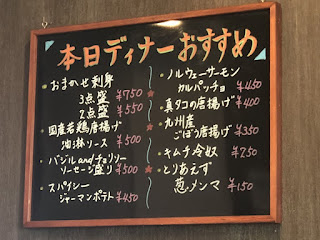 本日ディナーおすすめ
・おまかせ刺身
3点盛 ¥750
2点盛 ¥550
・国産若鶏唐揚げ
油淋ソース ¥500
・バジルandチョリソー
ソーセージ盛り ¥500
・スパイシー
ジャーマンポテト ¥450
・ノルウェーサーモン
カルパッチョ ¥450
・真タコの唐揚げ ¥400
・九州産
ごぼう唐揚げ ¥350
・キムチ冷奴 ¥250
・とりあえず
葱メンマ ¥150